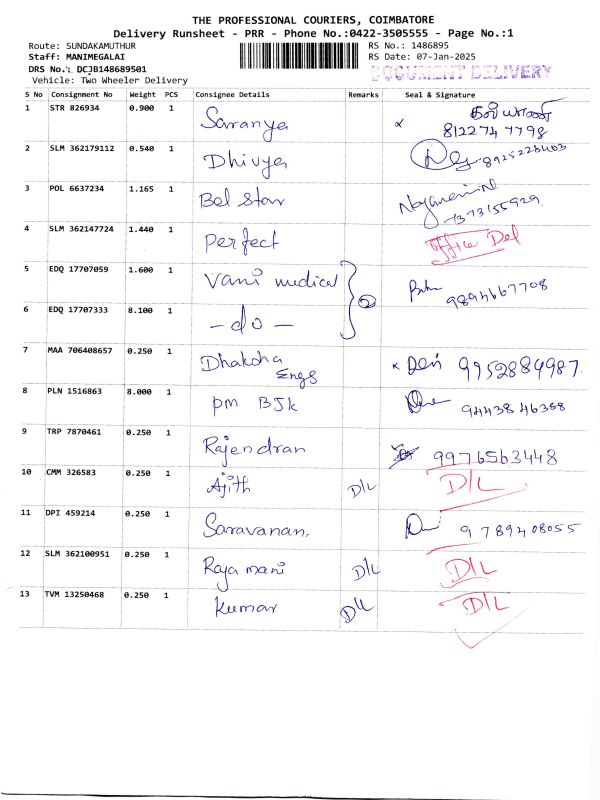 THE PROFESSIONAL COURIERS, COIMBATORE
Delivery Runsheet - PRR - Phone No.:0422-3505555 - Page No.:1
Route: SUNDAKAMUTHUR RS No.: 1486895
Staff: MANIMEGALAI RS Date: 07-Jan-2025
DRS No.: DCJB148689501 DOCUMENT DELIVERY
Vehicle: Two Wheeler Delivery
S No Consignment No Weight PCS Consignee Details Remarks Seal & Signature
1 STR 826934 0.900 1 Saranya x கல்யாணி
812274 7798
2 SLM 362179112 0.540 1 Dhivya 8925228403
3 POL 6637234 1.165 1 Bel Star
7373155929
4 SLM 362147724 1.440 1 Perfect Office Del
5 EDQ 17707059 1.600 1 Vani medical 2
9894667708
6 EDQ 17707333 8.100 1 - do -
7 MAA 706408657 0.250 1 Dhaksha x 9952884987
Engs
8 PLN 1516863 8.000 1 PM BJK 94438 46388
9 TRP 7870461 0.250 1 Rajendran 9976563448
10 CMM 326583 0.250 1 Ajith D/L D/L
11 DPI 459214 0.250 1 Saravanan. 9 789408055
12 SLM 362100951 0.250 1 Raja mani D/L D/L
13 TVM 13250468 0.250 1 Kumar D/L D/L